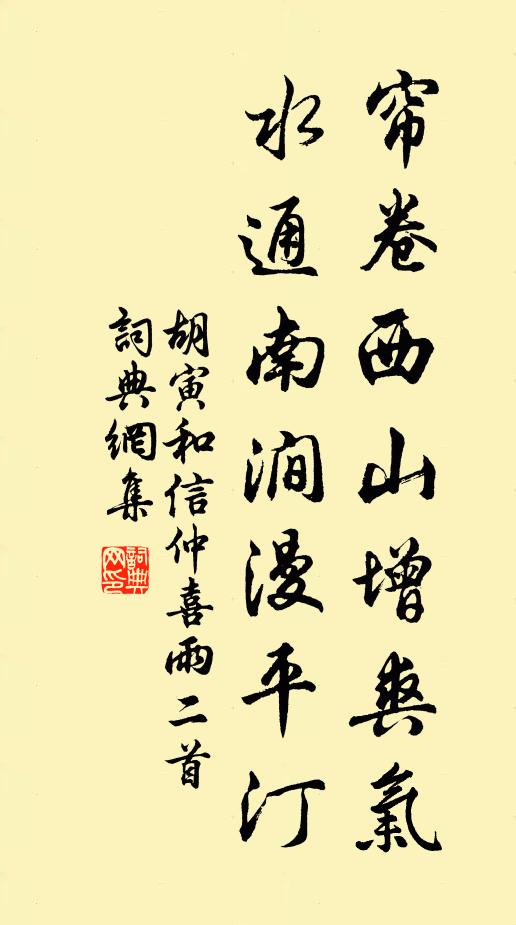 帘卷西山增爽氣
水通南澗漫平汀
胡寅和信仲喜雨二首
詞典網集
詞典网印